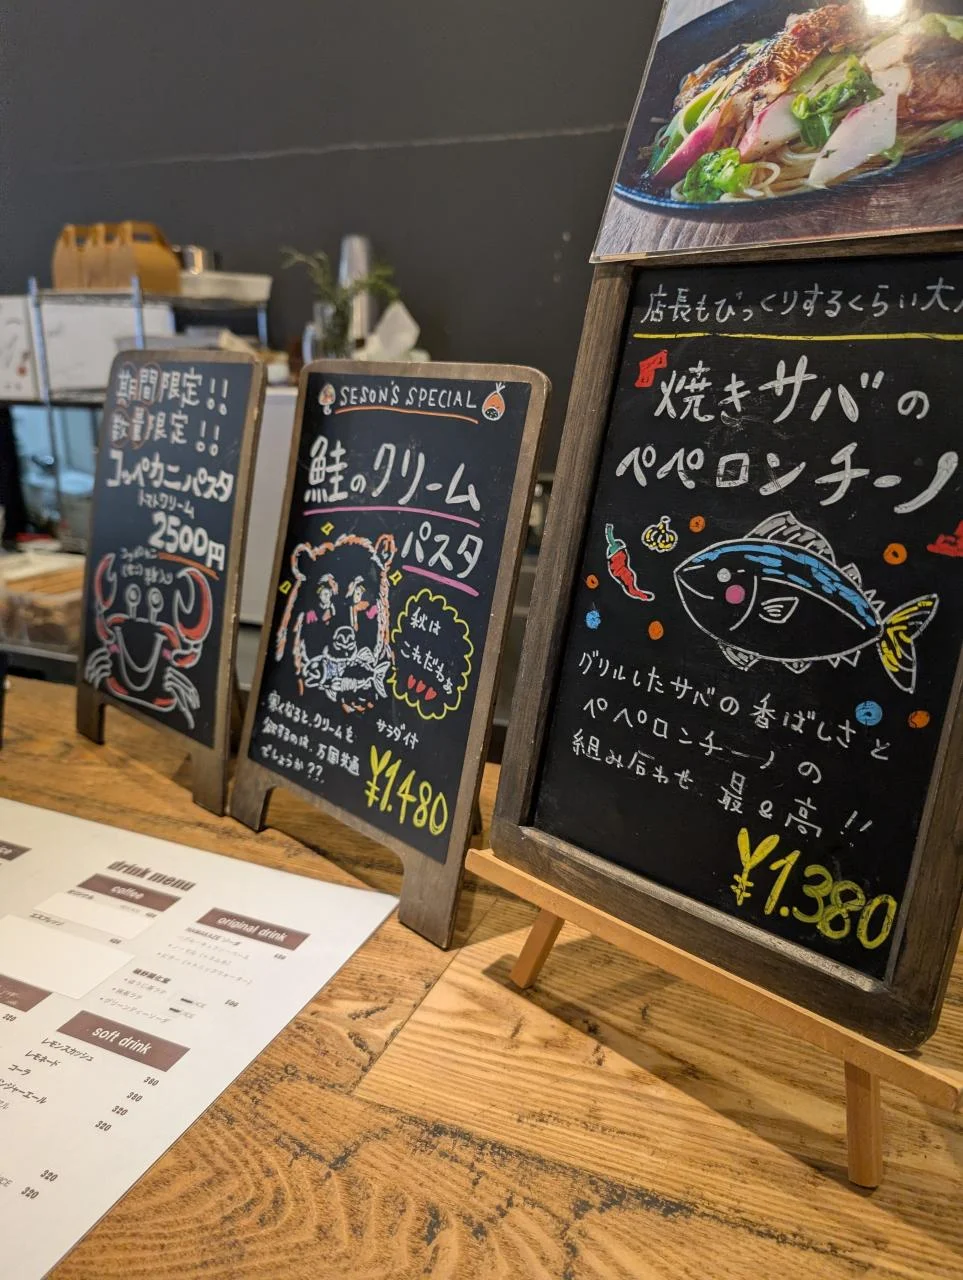 期間限定!!
数量限定!!
コッペカニパスタ
トマトクリーム
2500円
SESON'S SPECIAL
鮭のクリーム
パスタ
秋は
これだわぁ
寒くなると、クリームを
欲するのは、万国共通
でしょうか??
サラダ付
¥1.480
店長もびっくりするくらい大
焼きサバの
ペペロンチーノ
グリルしたサバの香ばしさと
ペペロンチーノの
組み合わせ 最&高!!
¥1.380
drink menu
coffee
エスプレッソ
original drink
soft drink
レモンスカッシュ
380
レモネード
380
コーラ
320
ンジャーエール
320
320
320